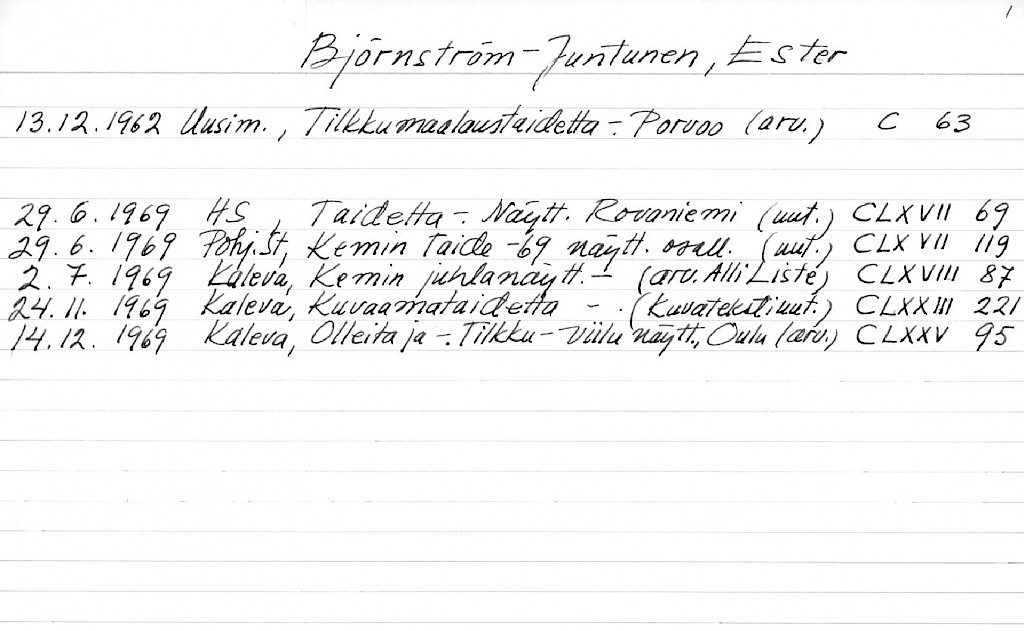 1
Björnström-Juntunen, Ester
13.12.1962 Uusim., Tilkkumaalaustaidetta -. Porvoo (arv.) C 63
29.6.1969 HS, Taidetta -. Näytt. Rovaniemi (uut.) CLXVII 69
29.6.1969 Pohj.St, Kemin Taide -69 näytt. osall. (uut.) CLXVII 119
2.7.1969 Kaleva, Kemin juhlanäytt. - (arv. Alli Liste) CLXVIII 87
24.11.1969 Kaleva, Kuvaamataidetta - . (Kuvatekstiuut.) CLXXIII 221
14.12.1969 Kaleva, Olleita ja -. Tilkku- viilu näytt., Oulu (arv.) CLXXV 95